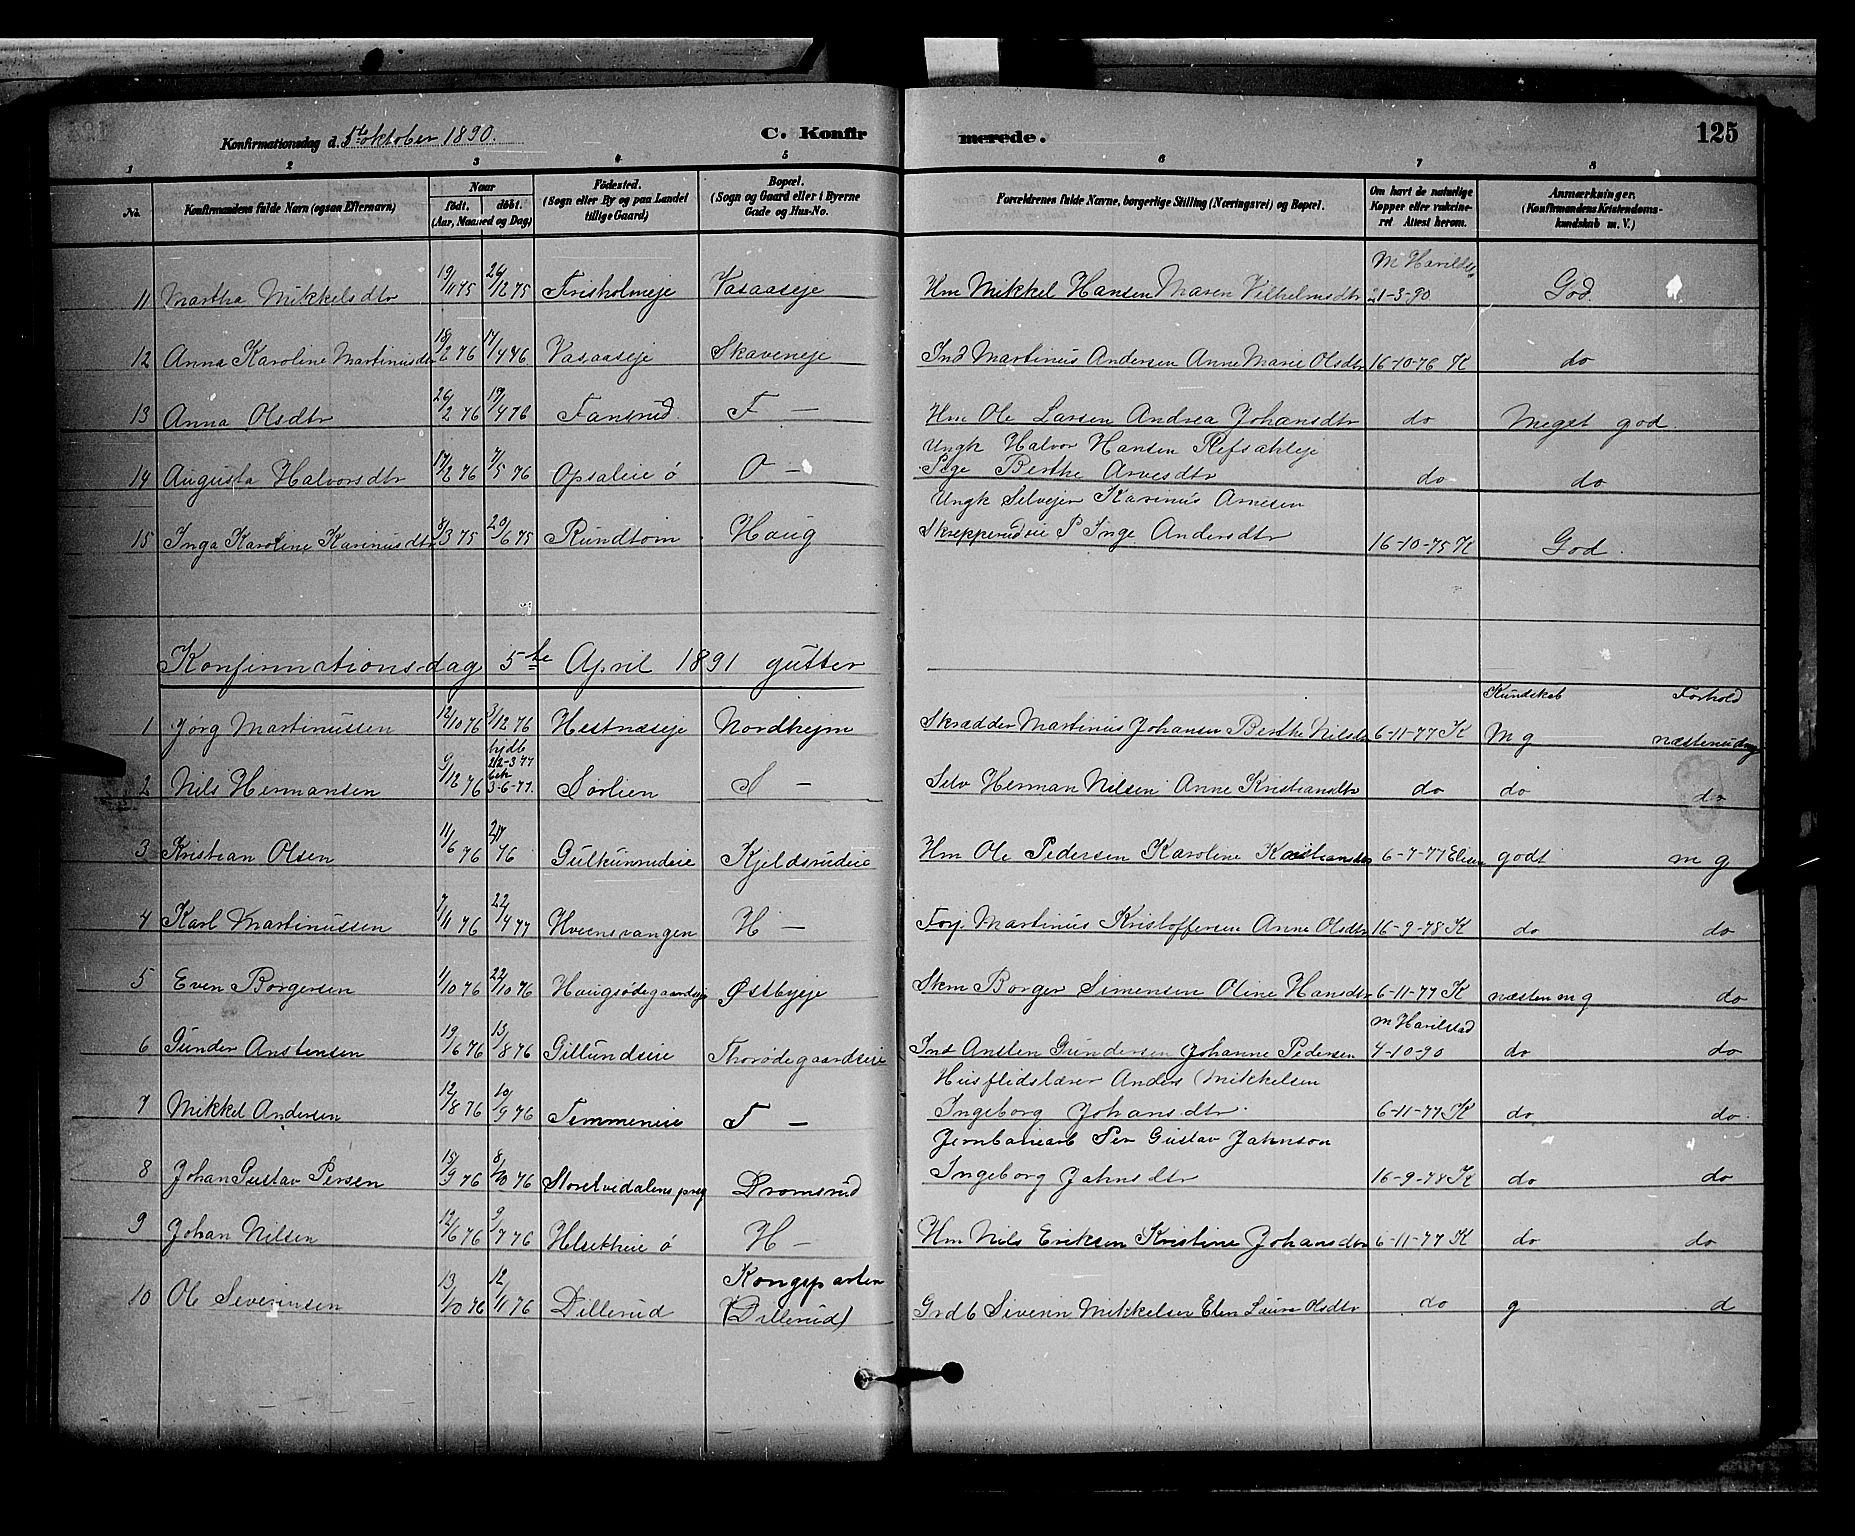 Konfirmationsdag d. 5te oktober 1890. C. Konfirmerede. 125
1 2 3 4 5 6 7 8
No. Konfirmandens fulde Navn (ogsaa Efternavn) Naar født. døbt. (Aar, Maaned og Dag) Fødested. (Sogn eller By og paa Landet tillige Gaard) Bopæl. (Sogn og Gaard eller i Byerne Gade og Hus-No. Forældrenes fulde Navne, borgerlige Stilling (Næringsvei) og Bopæl. Om havt de naturlige Kopper eller vakcineret Attest herom. Anmærkninger. (Konfirmandens Kristendomskundskab m. V.)
11 Martha Mikkelsdtr 19/11 75 26/12 75 Frisholmeje Vasaaseje Hm Mikkel Hansen Maren Vilhelmsdtr 21-3-90 God
12 Anna Karoline Martinusdtr 18/2 76 17/4 76 Vasaaseje Skaveneje Ind Martinus Andersen Anne Marie Olsdtr 16-10-76 K do
13 Anna Olsdtr 26/2 76 17/4 76 Fansrud F — Hm Ole Larsen Andrea Johansdtr do Meget god
14 Augusta Halvorsdtr 17/2 76 7/5 76 Opsaleie ø O — Ungk Halvor Hansen Refsahleje
Pige Berthe Arnesdtr do do
15 Inga Karoline Karinusdtr 8/3 75 20/6 75 Rundtom Haug Ungk Selvejer Karinus Arnesen
Skrepperudeie P Inge Andersdtr 16-10-75 K God
Konfirmationsdag 5te April 1891 gutter
Kundskab Forhold
1 Jørg Martinussen 12/10 76 3/12 76 Hestnæseje Nordhejm Skrædder Martinus Johansen Berthe Nilsdtr 6-11-77 K M g næsten
2 Nils Hermansen 9/12 76 hjdb 22-3-77 bek 3-6-77. Sørlien S — Selv Herman Nilsen Anne Kristiansdtr do do do
3 Kristian Olsen 11/6 76 76 Gulkunrudeie Kjeldsrudeie Hm Ole Pedersen Karoline Kristiansdtr 6-7-77 godt m g
4 Karl Martinussen 7/11 76 22/4 77 Hveensvangen H — Martinus Kristoffersen Anne Olsdtr 16-9-78 K do do
5 Even Borgersen 1/10 76 22/10 76 Haugsødegaardseje Østbyeje Skm Borger Simensen Oline Hansdtr 6-11-77 K næsten m g do
6 Gunder Anstensen 19/6 76 13/8 76 Gillundseie Thorødegaardseie Ind Ansten Gundersen Johanne Pedersen M Harilstad 4-10-90 do do
7 Mikkel Andersen 12/8 76 10/9 76 Temmeneie T — Husflidslærer Anders Mikkelsen
Ingeborg Johansdtr 6-11-77 K do do
8 Johan Gustav Persen 15/9 76 8/10 76 Storelvedalens præg Dromsrud Jernbanearb Per Gustav Jahnson
Ingeborg Jahnsdtr 16-9-78 K do do
9 Johan Nilsen 12/6 76 9/7 76 Helsetheie ø H — Hm Nils Eriksen Kristine Johansdtr 6-11-77 K do do
10 Ole Severinsen 13/10 76 12/11 76 Dillerud Kongsparten (Dillerud) Grdb Siverin Mikkelsen Elen Laura Olsdtr do g d